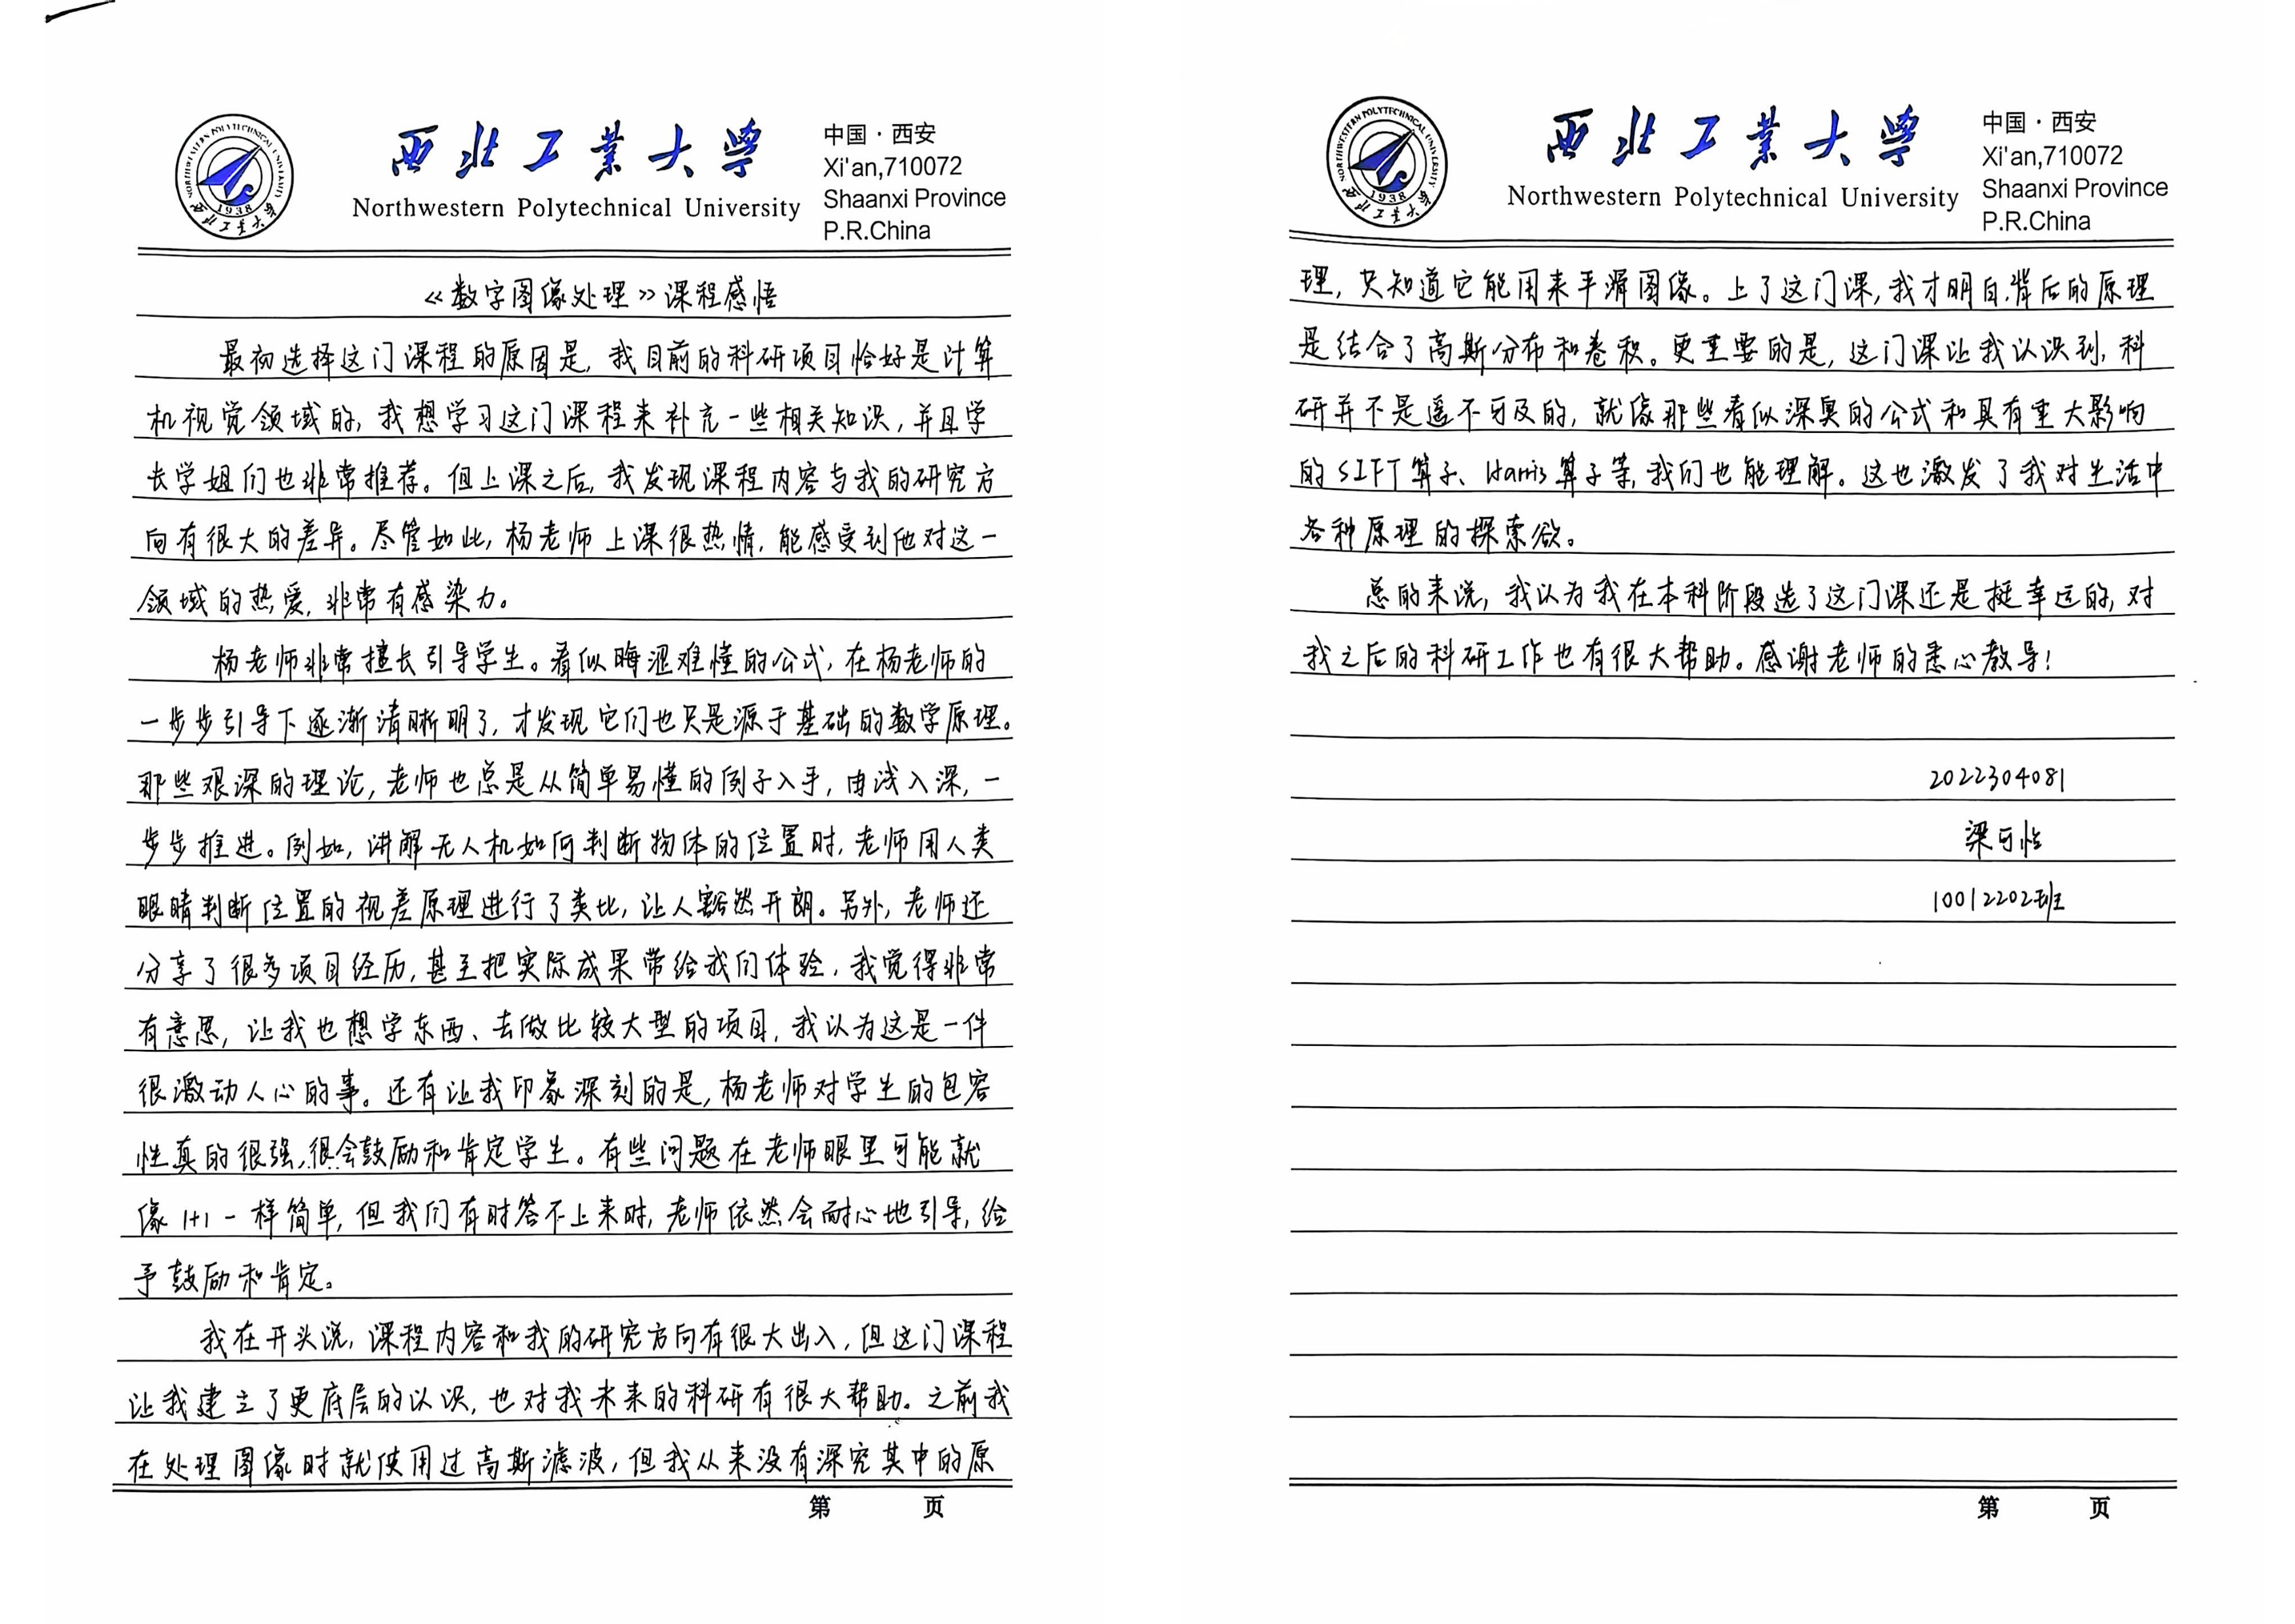 西北工业大学
Northwestern Polytechnical University
中国·西安
Xi'an,710072
Shaanxi Province
P.R.China
NORTHWESTERN POLYTECHNICAL UNIVERSITY
1938
西北工业大学
《数字图像处理》课程感悟
最初选择这门课程的原因是,我目前的科研项目恰好是计算
机视觉领域的,我想学习这门课程来补充一些相关知识,并且学
长学姐们也非常推荐。但上课之后,我发现课程内容与我的研究方
向有很大的差异。尽管如此,杨老师上课很热情,能感受到他对这一
领域的热爱,非常有感染力。
杨老师非常擅长引导学生。看似晦涩难懂的公式,在杨老师的
一步步引导下逐渐清晰明了,才发现它们也只是源于基础的数学原理。
那些艰深的理论,老师也总是从简单易懂的例子入手,由浅入深,一
步步推进。例如,讲解无人机如何判断物体的位置时,老师用人类
眼睛判断位置的视差原理进行了类比,让人豁然开朗。另外,老师还
分享了很多项目经历,甚至把实际成果带给我们体验,我觉得非常
有意思,让我也想学东西、去做比较大型的项目,我认为这是一件
很激动人心的事。还有让我印象深刻的是,杨老师对学生的包容
性真的很强,很会鼓励和肯定学生。有些问题在老师眼里可能就
像1+1一样简单,但我们有时答不上来时,老师依然会耐心地引导,给
予鼓励和肯定。
我在开头说,课程内容和我的研究方向有很大出入,但这门课程
让我建立了更底层的认识,也对我未来的科研有很大帮助。之前我
在处理图像时就使用过高斯滤波,但我从来没有深究其中的原
第 页
西北工业大学
Northwestern Polytechnical University
中国·西安
Xi'an,710072
Shaanxi Province
P.R.China
NORTHWESTERN POLYTECHNICAL UNIVERSITY
1938
西北工业大学
理,只知道它能用来平滑图像。上了这门课,我才明白,背后的原理
是结合了高斯分布和卷积。更重要的是,这门课让我认识到,科
研并不是遥不可及的,就像那些看似深奥的公式和具有重大影响
的SIFT算子、Harris算子等,我们也能理解。这也激发了我对生活中
各种原理的探索欲。
总的来说,我认为我在本科阶段选了这门课还是挺幸运的,对
我之后的科研工作也有很大帮助。感谢老师的悉心教导!
2022304081
梁可怡
10012202班
第 页